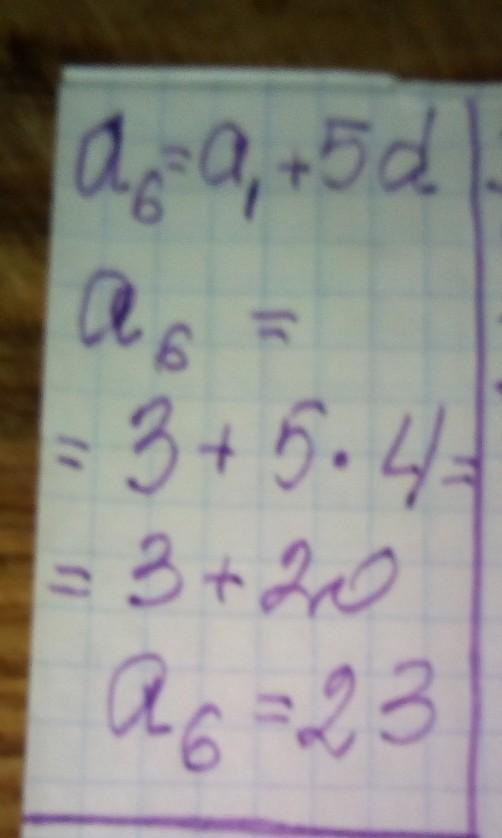 a₆ = a₁ + 5d
a₆ =
= 3 + 5 · 4 =
= 3 + 20
a₆ = 23